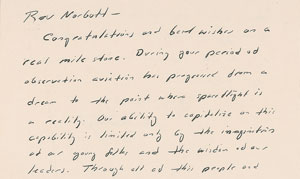 Rev Norbott —
Congratulations and best wishes on a
real mile stone. During your period of
observation aviation has progressed from a
dream to the point where spaceflight is
a reality. Our ability to capitalize on this
capability is limited only by the imagination
of our young folks and the wisdom of our
leaders. Through all of this people and